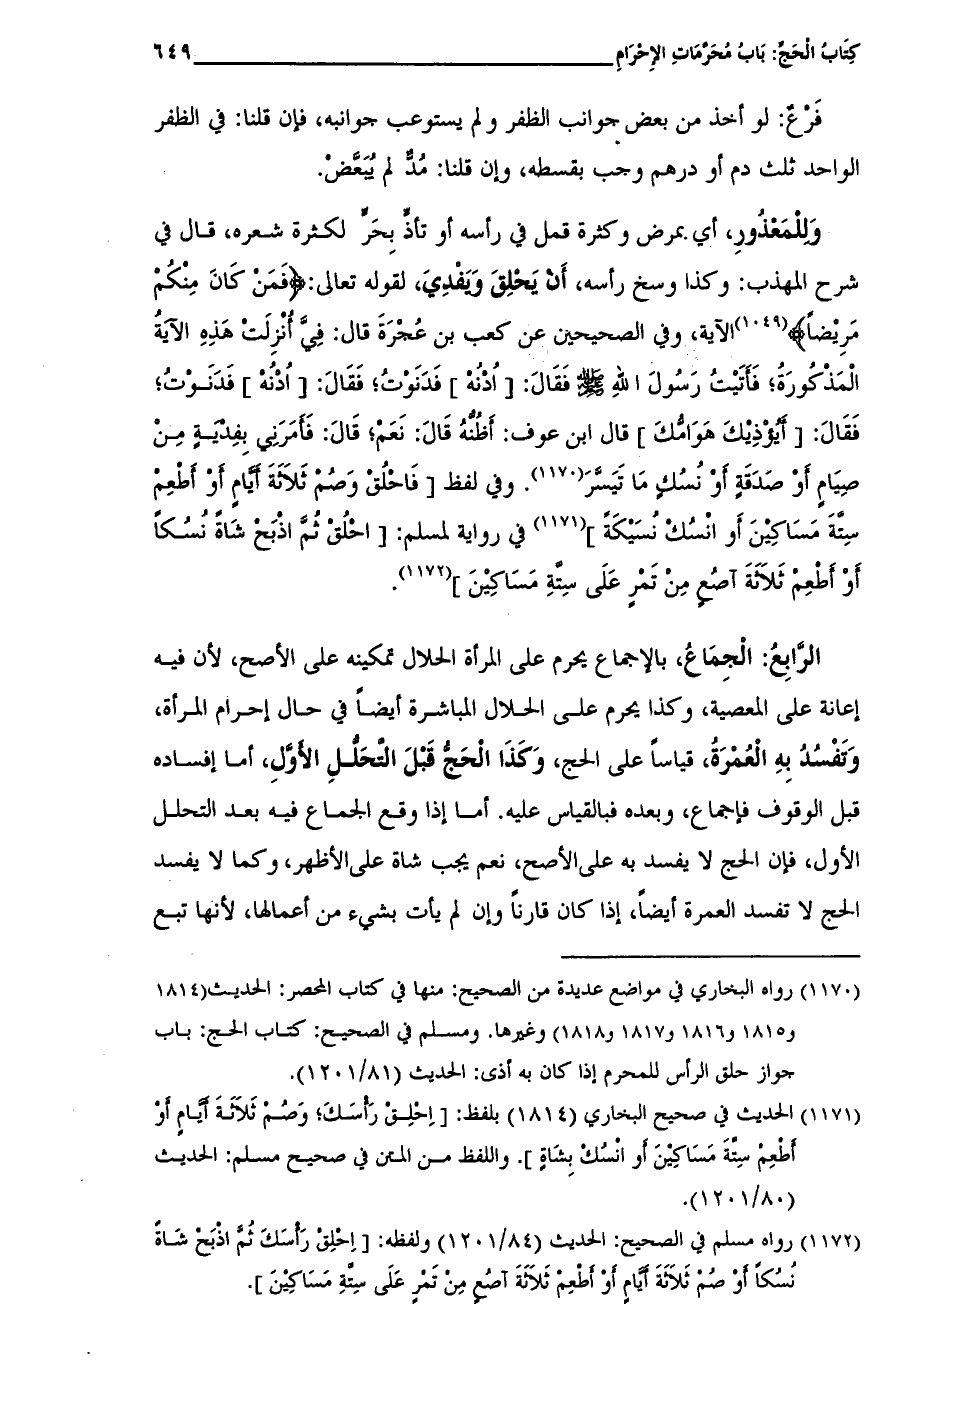 كِتَابُ الْحَجِّ: بَابُ مُحَرَّمَاتِ الإِحْرَامِ ٦٤٩
فَرْعٌ: لو أخذ من بعض جوانب الظفر ولم يستوعب جوانبه، فإن قلنا: في الظفر
الواحد ثلث دم أو درهم وجب بقسطه، وإن قلنا: مُدٌّ لم يُبَعَّضْ.
وَلِلْمَعْذُورِ، أي بمرض وكثرة قمل في رأسه أو تأذٍّ بِحَرٍّ لكثرة شعره، قال في
شرح المهذب: وكذا وسخ رأسه، أَنْ يَحْلِقَ وَيَفْدِيَ، لقوله تعالى: ﴿فَمَنْ كَانَ مِنْكُمْ
مَرِيْضاً﴾(١٠٤٩)الآية، وفي الصحيحين عن كعب بن عُجْرَةَ قال: فِيَّ أُنْزِلَتْ هَذِهِ الآيَةُ
الْمَذْكُورَةُ؛ فَأَتَيْتُ رَسُولَ اللهِ ﷺ فَقَالَ: [ اُدْنُهْ ] فَدَنَوْتُ؛ فَقَالَ: [ اُدْنُهْ ] فَدَنَـوْتُ؛
فَقَالَ: [ أَيُؤْذِيْكَ هَوَامُّكَ ] قال ابن عوف: أَظُنُّهُ قَالَ: نَعَمْ؛ قَالَ: فَأَمَرَنِي بِفِدْيَـةٍ مِـنْ
صِيَامٍ أَوْ صَدَقَةٍ أَوْ نُسُكٍ مَا تَيَسَّرَ(١١٧٠). وفي لفظ [ فَاحْلُقْ وَصُمْ ثَلاَثَةَ أَيَّامٍ أَوْ أَطْعِمْ
سِتَّةَ مَسَاكِيْنَ أَو انْسُكْ نُسَيْكَةً ](١١٧١) في رواية لمسلم: [ احْلُقْ ثُمَّ اذْبَحْ شَاةً نُسُـكاً
أَوْ أَطْعِمْ ثَلاَثَةَ آصُعٍ مِنْ تَمْرٍ عَلَى سِتَّةِ مَسَاكِيْنَ ](١١٧٢).
الرَّابِعُ: الْجِمَاعُ، بالإجماع يحرم على المرأة الحلال تمكينه على الأصح، لأن فيـه
إعانة على المعصية، وكذا يحرم علـى الحـلال المباشرة أيضـاً في حـال إحـرام المـرأة،
وَتَفْسُدُ بِهِ الْعُمْرَةُ، قياساً على الحج، وَكَذَا الْحَجُّ قَبْلَ التَّحَلُّـلِ الأَوَّلِ، أمـا إفسـاده
قبل الوقوف فإجماع، وبعده فبالقياس عليه. أمـا إذا وقـع الجمـاع فيـه بعـد التحلـل
الأول، فإن الحج لا يفسد به على الأصح، نعم يجب شاة على الأظهر، وكما لا يفسد
الحج لا تفسد العمرة أيضاً، إذا كان قارناً وإن لم يأت بشيء من أعمالها، لأنها تبـع
(١١٧٠) رواه البخاري في مواضع عديدة من الصحيح: منها في كتاب المحصر: الحديـث(١٨١٤
و١٨١٥ و١٨١٦ و١٨١٧ و١٨١٨) وغيرها. ومسلم في الصحيح: كتـاب الحـج: بـاب
جواز حلق الرأس للمحرم إذا كان به أذى: الحديث (١٢٠١/٨١).
(١١٧١) الحديث في صحيح البخاري (١٨١٤) بلفظ: [ اِحْلِـقْ رَأْسَـكَ؛ وَصُـمْ ثَلاَثَـةَ أَيَّـامٍ أَوْ
أَطْعِمْ سِتَّةَ مَسَاكِيْنَ أَو انْسُكْ بِشَاةٍ ]. واللفظ مـن المتن في صحيـح مسـلم: الحديـث
(١٢٠١/٨٠).
(١١٧٢) رواه مسلم في الصحيح: الحديث (١٢٠١/٨٤) ولفظه: [ اِحْلِقْ رَأْسَكَ ثُمَّ اذْبَحْ شَـاةً
نُسُكاً أَوْ صُمْ ثَلاَثَةَ أَيَّامٍ أَوْ أَطْعِمْ ثَلاَثَةَ آصُعٍ مِنْ تَمْرٍ عَلَى سِتَّةِ مَسَاكِيْنَ ].